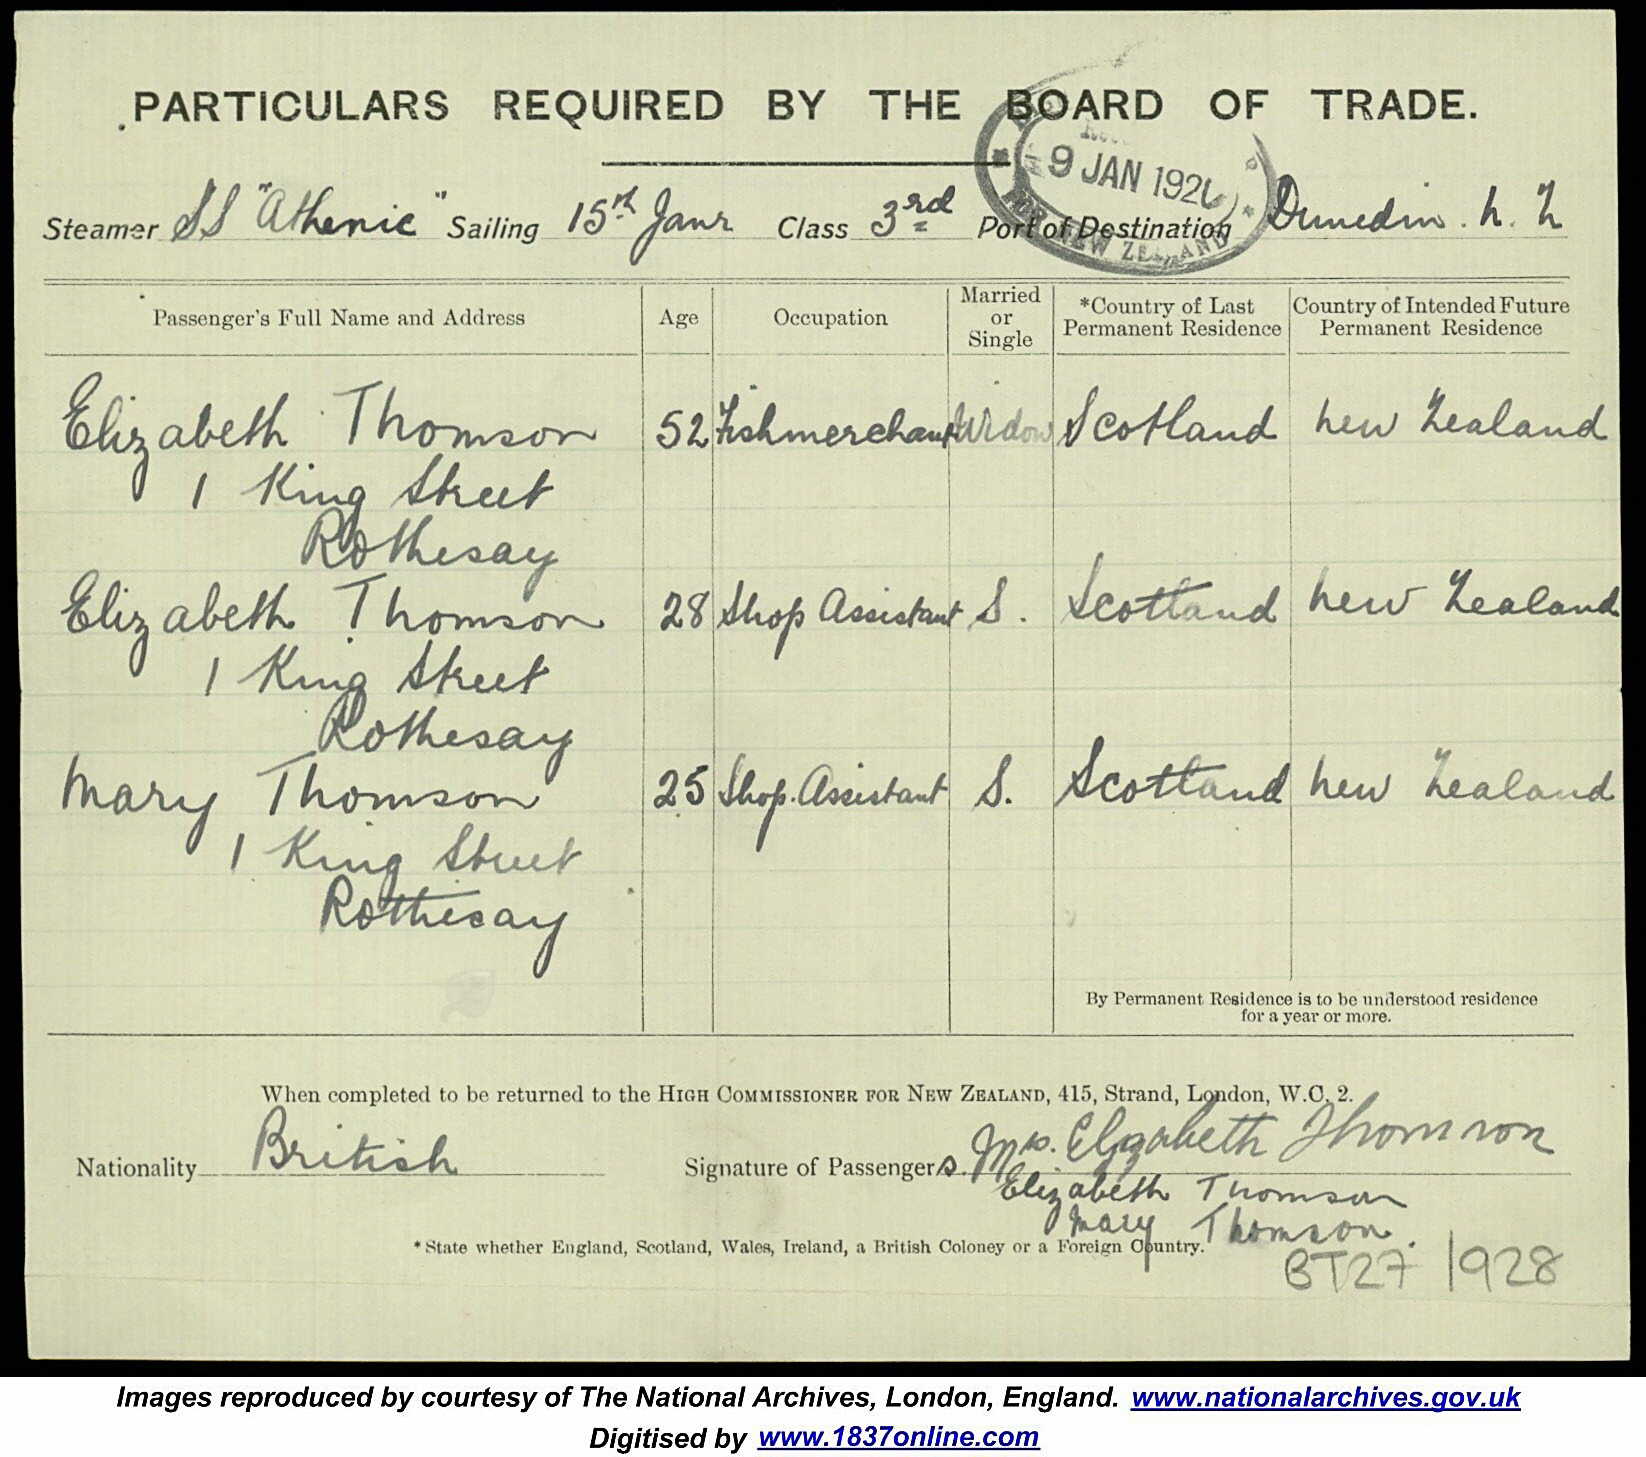 PARTICULARS REQUIRED BY THE BOARD OF TRADE.
9 JAN 192
FOR NEW ZEALAND
Steamer SS "Athenic" Sailing 15th Janr Class 3rd Port of Destination Dunedin. N. Z
Passenger's Full Name and Address Age Occupation Married or Single *Country of Last Permanent Residence Country of Intended Future Permanent Residence
Elizabeth Thomson 52 Fishmerchant Widow Scotland New Zealand
1 King Street
Rothesay
Elizabeth Thomson 28 Shop Assistant S. Scotland New Zealand
1 King Street
Rothesay
Mary Thomson 25 Shop. Assistant S. Scotland New Zealand
1 King Street
Rothesay
By Permanent Residence is to be understood residence
for a year or more.
When completed to be returned to the HIGH COMMISSIONER FOR NEW ZEALAND, 415, Strand, London, W.C. 2.
Nationality British Signature of Passengers. Mrs. Elizabeth Thomson
Elizabeth Thomson
Mary Thomson.
*State whether England, Scotland, Wales, Ireland, a British Coloney or a Foreign Country.
BT27 1928
Images reproduced by courtesy of The National Archives, London, England. www.nationalarchives.gov.uk
Digitised by www.1837online.com